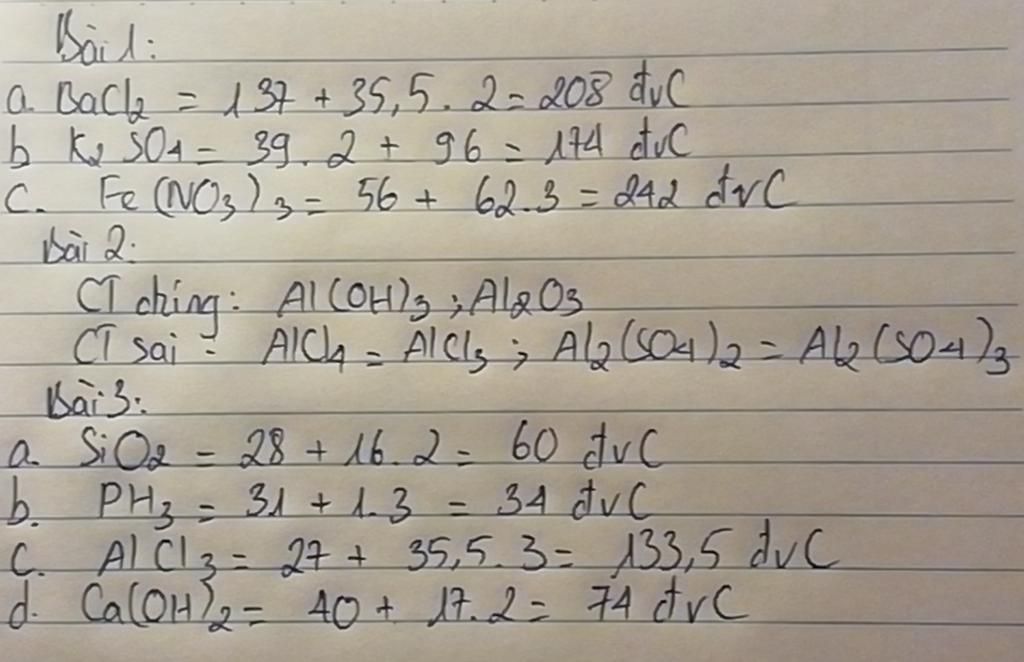 Bài 1:
a. BaCl2 = 137 + 35,5 . 2 = 208 đvC
b K2 SO4 = 39 . 2 + 96 = 174 đvC
c. Fe (NO3)3 = 56 + 62.3 = 242 đvC
Bài 2:
CT ching: Al(OH)3 ; Al2O3
CT sai : AlCl4 = AlCl3 ; Al2(SO4)2 = Al2(SO4)3
Bài 3:
a. SiO2 = 28 + 16. 2 = 60 đvC
b. PH3 = 31 + 1. 3 = 34 đvC
c. AlCl3 = 27 + 35,5. 3 = 133,5 đvC
d. Ca(OH)2 = 40 + 17. 2 = 74 đvC